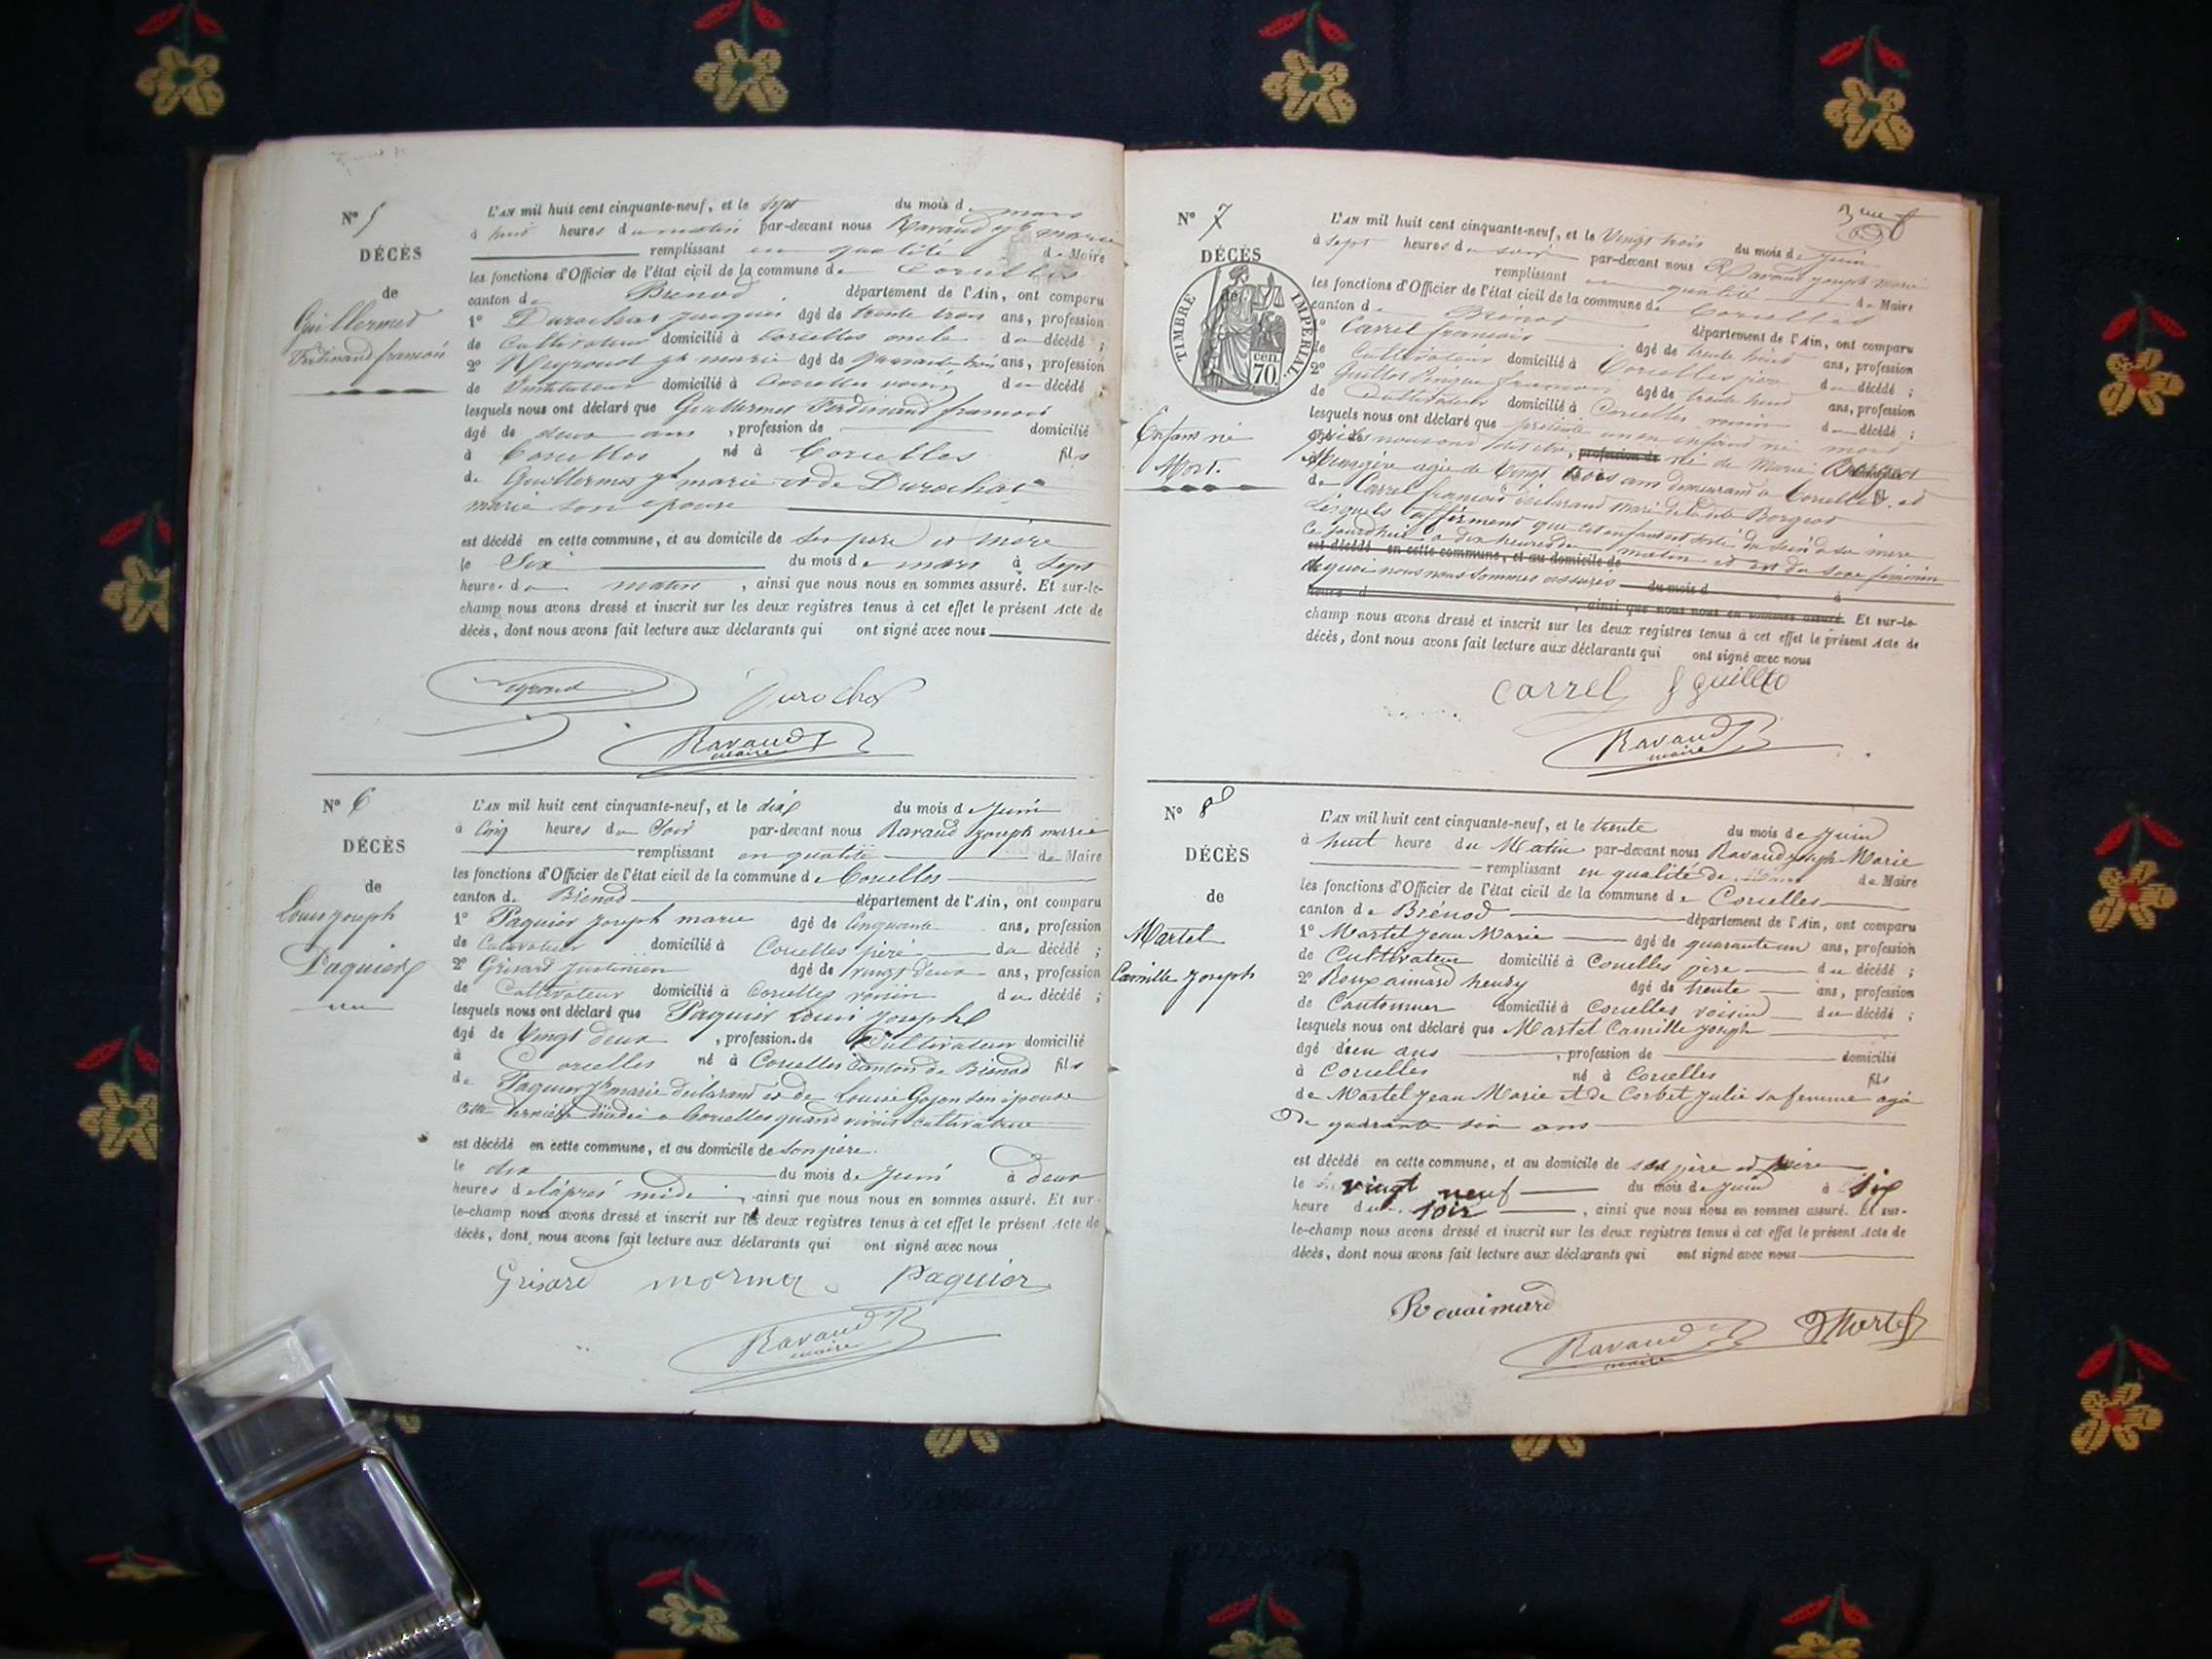 N° 5
DÉCÈS
de
Guillermet
Ferdinand françois
L'AN mil huit cent cinquante-neuf, et le sept du mois de mars
à huit heures du matin par-devant nous Ravaud jh marie
remplissant en qualité de Maire
les fonctions d'Officier de l'état civil de la commune de Corcelles
canton de Brenod département de l'Ain, ont comparu
1° Durochat jacques âgé de trente trois ans, profession
de Cultivateur domicilié à Corcelles oncle du décédé ;
2° Neyroud jh marie âgé de quarante trois ans, profession
de Instituteur domicilié à Corcelles voisin du décédé
lesquels nous ont déclaré que Guillermet Ferdinand francois
âgé de deux ans , profession de domicilié
à Corcelles né à Corcelles fils
de Guillermet jh marie et de Durochat
marie son epouse
est décédé en cette commune, et au domicile de ses pere et mère
le Six du mois de mars à sept
heures du matin , ainsi que nous nous en sommes assuré. Et sur-le-
champ nous avons dressé et inscrit sur les deux registres tenus à cet effet le présent Acte de
décès, dont nous avons fait lecture aux déclarants qui ont signé avec nous
Neyroud Durochat
Ravaud
maire
N° 6
DÉCÈS
de
Louis joseph
Paquier
L'AN mil huit cent cinquante-neuf, et le dix du mois de juin
à Cinq heures du Soir par-devant nous Ravaud joseph marie
remplissant en qualité de Maire
les fonctions d'Officier de l'état civil de la commune de Corcelles
canton de Brénod département de l'Ain, ont comparu
1° Paquier joseph marie âgé de Cinquante ans, profession
de Cultivateur domicilié à Corcelles père du décédé ;
2° Grisard justinien âgé de vingt deux ans, profession
de Cultivateur domicilié à Corcelles voisin du décédé ;
lesquels nous ont déclaré que Paquier Louis joseph
âgé de Vingt deux , profession de Cultivateur domicilié
à Corcelles né à Corcelles Canton de Brénod fils
de Paquier jh marie déclarant et de Louise Gozon son épouse
cette dernière décédée a Corcelles quand vivait cultivatrice
est décédé en cette commune, et au domicile de son père
le dix du mois de juin à deux
heures de l'aprés midi , ainsi que nous nous en sommes assuré. Et sur-
le-champ nous avons dressé et inscrit sur les deux registres tenus à cet effet le présent Acte de
décès, dont nous avons fait lecture aux déclarants qui ont signé avec nous
Grisard Paquier
Ravaud
maire
N° 7
DÉCÈS
de
TIMBRE IMPÉRIAL
70 cen.
Enfant né
Mort.
L'AN mil huit cent cinquante-neuf, et le Vingt trois du mois de juin
à sept heures du soir par-devant nous Ravaud joseph marie
remplissant en qualité de Maire
les fonctions d'Officier de l'état civil de la commune de Corcelles
canton de Brenod département de l'Ain, ont comparu
1° Carrel francois âgé de trente huit ans, profession
de Cultivateur domicilié à Corcelles père du décédé ;
2° Guillot francois âgé de trente huit ans, profession
de Cultivateur domicilié à Corcelles voisin du décédé ;
lesquels nous ont déclaré que présenté un enfant né mort
qu'ils nous ont né de Marie Borgeot
Menagère agée de Vingt trois ans demeurant a Corcelles et
de Carrel francois déclarant mari de la dite Borgeot
Lesquels affirment que cet enfant est sorti du sein de sa mère
Ce jourd'hui a dix heures du matin et est du sexe feminin
est décédé en cette commune, et au domicile de
de quoi nous nous sommes assurés du mois d à
heure d , ainsi que nous nous en sommes assuré. Et sur-le-
champ nous avons dressé et inscrit sur les deux registres tenus à cet effet le présent Acte de
décès, dont nous avons fait lecture aux déclarants qui ont signé avec nous
Carrel
Ravaud
maire
N° 8
DÉCÈS
de
Martel
Camille joseph
L'AN mil huit cent cinquante-neuf, et le trente du mois de juin
à huit heure du Matin par-devant nous Ravaud joseph Marie
remplissant en qualité de de Maire
les fonctions d'Officier de l'état civil de la commune de Corcelles
canton de Brénod département de l'Ain, ont comparu
1° Martel jean Marie âgé de quarante un ans, profession
de Cultivateur domicilié à Corcelles père du décédé ;
2° Rouxaimard henry âgé de trente ans, profession
de Cantonnier domicilié à Corcelles voisin du décédé ;
lesquels nous ont déclaré que Martel Camille joseph
âgé d'un ans , profession de domicilié
à Corcelles né à Corcelles fils
de Martel jean Marie et de Corbet julie sa femme agé
De quarante six ans
est décédé en cette commune, et au domicile de ses père et mère
le vingt neuf du mois de juin à six
heure du soir , ainsi que nous nous en sommes assuré. Et sur-
le-champ nous avons dressé et inscrit sur les deux registres tenus à cet effet le présent Acte de
décès, dont nous avons fait lecture aux déclarants qui ont signé avec nous
Rouaimard
Ravaud JMartel
maire